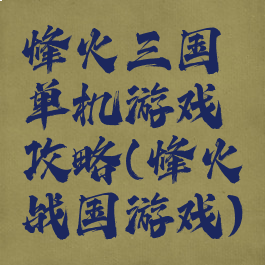 烽火三国
单机游戏
攻略(烽火
战国游戏)